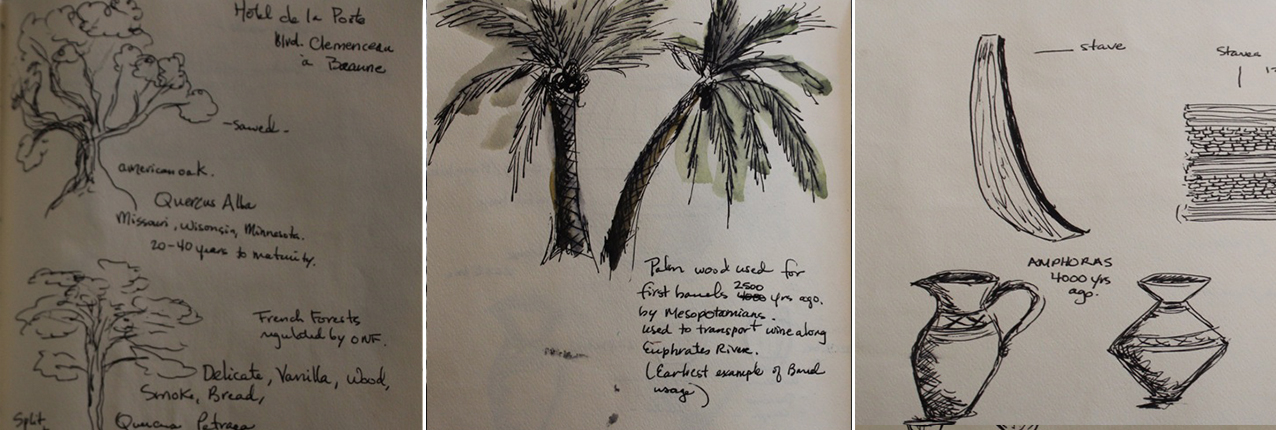 Hotel de la Poste
Blvd. Clemenceau
à Beaune
-sawed-
american oak.
Quercus Alba
Missouri, Wisonsin, Minnesota.
20-40 years to maturity.
French Forests
regulated by ONF.
Delicate, Vanilla, Wood,
Smoke, Bread,
Split
Quercus Petraea
Palm wood used for
first barrels 2500 4000 yrs ago.
by Mesopotamians.
used to transport wine along
Euphrates River.
(Earliest example of Barrel
usage)
stave
Staves
AMPHORAS
4000 yrs
ago.